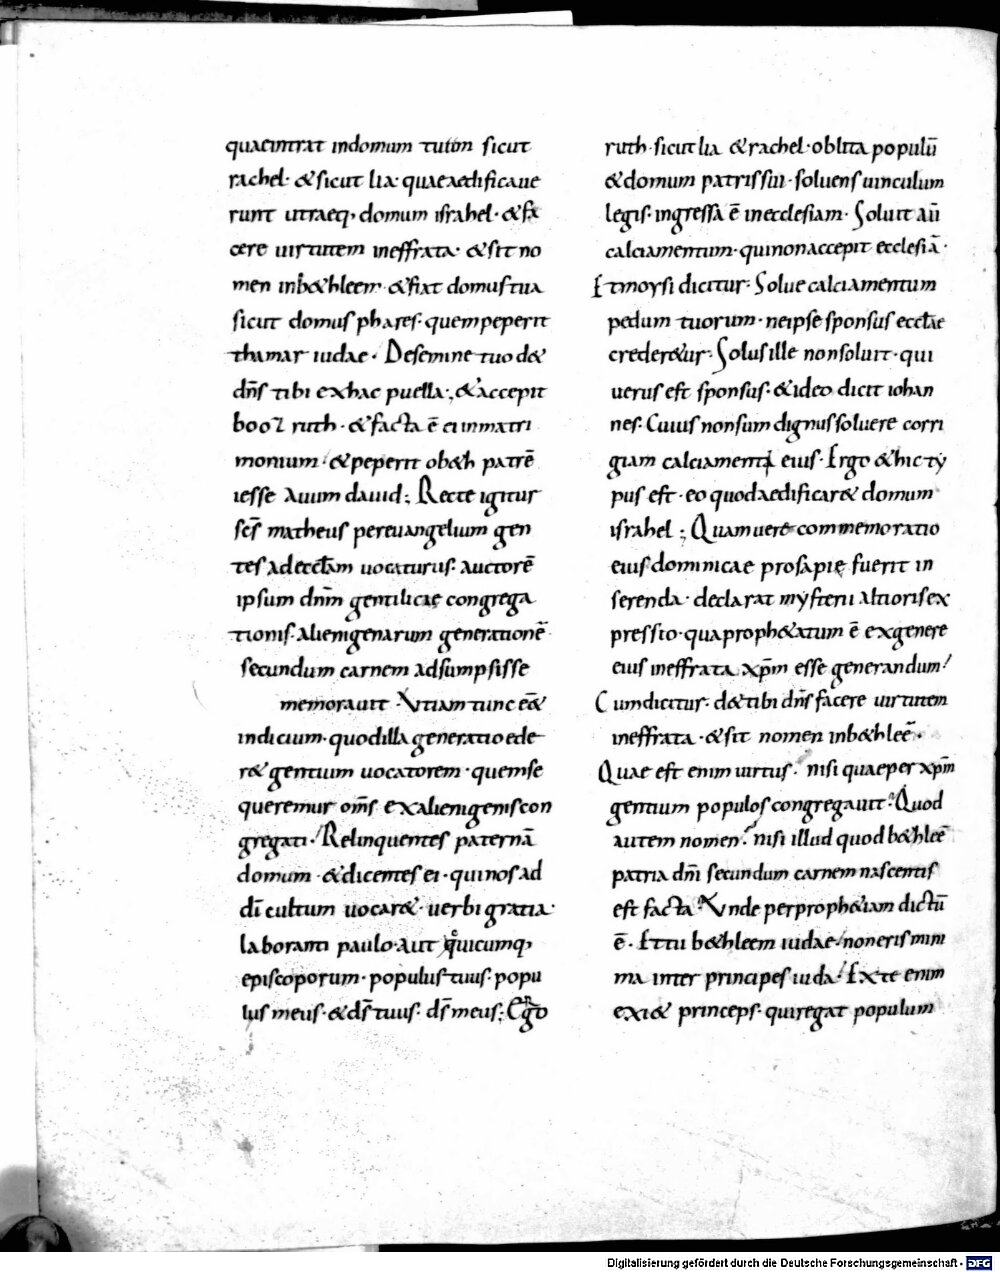 quae intrat indomum tuām sicut
rachel· &sicut lia· quaeaedificaue
runt utraeq; domum israhel· &fa
cere uirtutem ineffrata· &sit no
men inb&hleem· &fiat domus tua
sicut domus phares· quempeperit
thamar iudae· Desemine tuo d&
dn̄s tibi exhac puella; &accepit
booz ruth· &facta ē ei inmatri
monium· &peperit ob&h patrē
iesse auum dauid; Recte igitur
sc̄s matheus pereuangelium gen
tes adeccl̄am uocaturus· auctorē
ipsum dnm̄ gentilicae congrega
tionis· alienigenarum generationē
secundum carnem adsumpsisse
memorauit· Vtiam tunc e&̄
indicium· quodilla generatio ede
r& gentium uocatorem· quemse
queremur om̄s exalienigenis con
gregati· Relinquentes paternā
domum· &dicentes ei· qui nos ad
dī cultum uocar&· uerbi gratia·
laboranti paulo· aut quicumq;
episcoporum· populus tuus· popu
lus meus· &ds̄ tuus· ds̄ meus; Ergo
ruth· sicut lia &rachel· oblita populū
&domum patris sui· soluens uinculum
legis· ingressa ē inecclesiam· Soluit aū
calciamentum· quinon accepit ecclesiā·
Et moysi dicitur· Solue calciamentum
pedum tuorum· neipse sponsus eccl̄ae
creder&ur· Solus ille nonsoluit· qui
uerus est sponsus· &ideo dicit iohan
nes· Cuius nonsum dignus soluere corri
giam calciamenti eius· Ergo &hic ty
pus est· eo quodaedificar& domum
israhel; Quam uere commemoratio
eius dominicae prosapię fuerit in
serenda· declarat mysterii altioris ex
pressio· qua proph&atum ē exgenere
eius ineffrata xpm̄ esse generandum!
Cum dicitur· d& tibi dn̄s facere uirtutem
ineffrata· &sit nomen inb&hleē·
Quae est enim uirtus· nisi quaeper xpm̄
gentium populos congregauit· Quod
autem nomen· nisi illud quod b&hleē
patria dn̄i secundum carnem nascentis
est facta· Vnde perproph&iam dictū
ē· Et tu b&hleem iudae· noneris mini
ma inter principes iuda· Exte enim
exi& princeps· quiregat populum
Digitalisierung gefördert durch die Deutsche Forschungsgemeinschaft - DFG